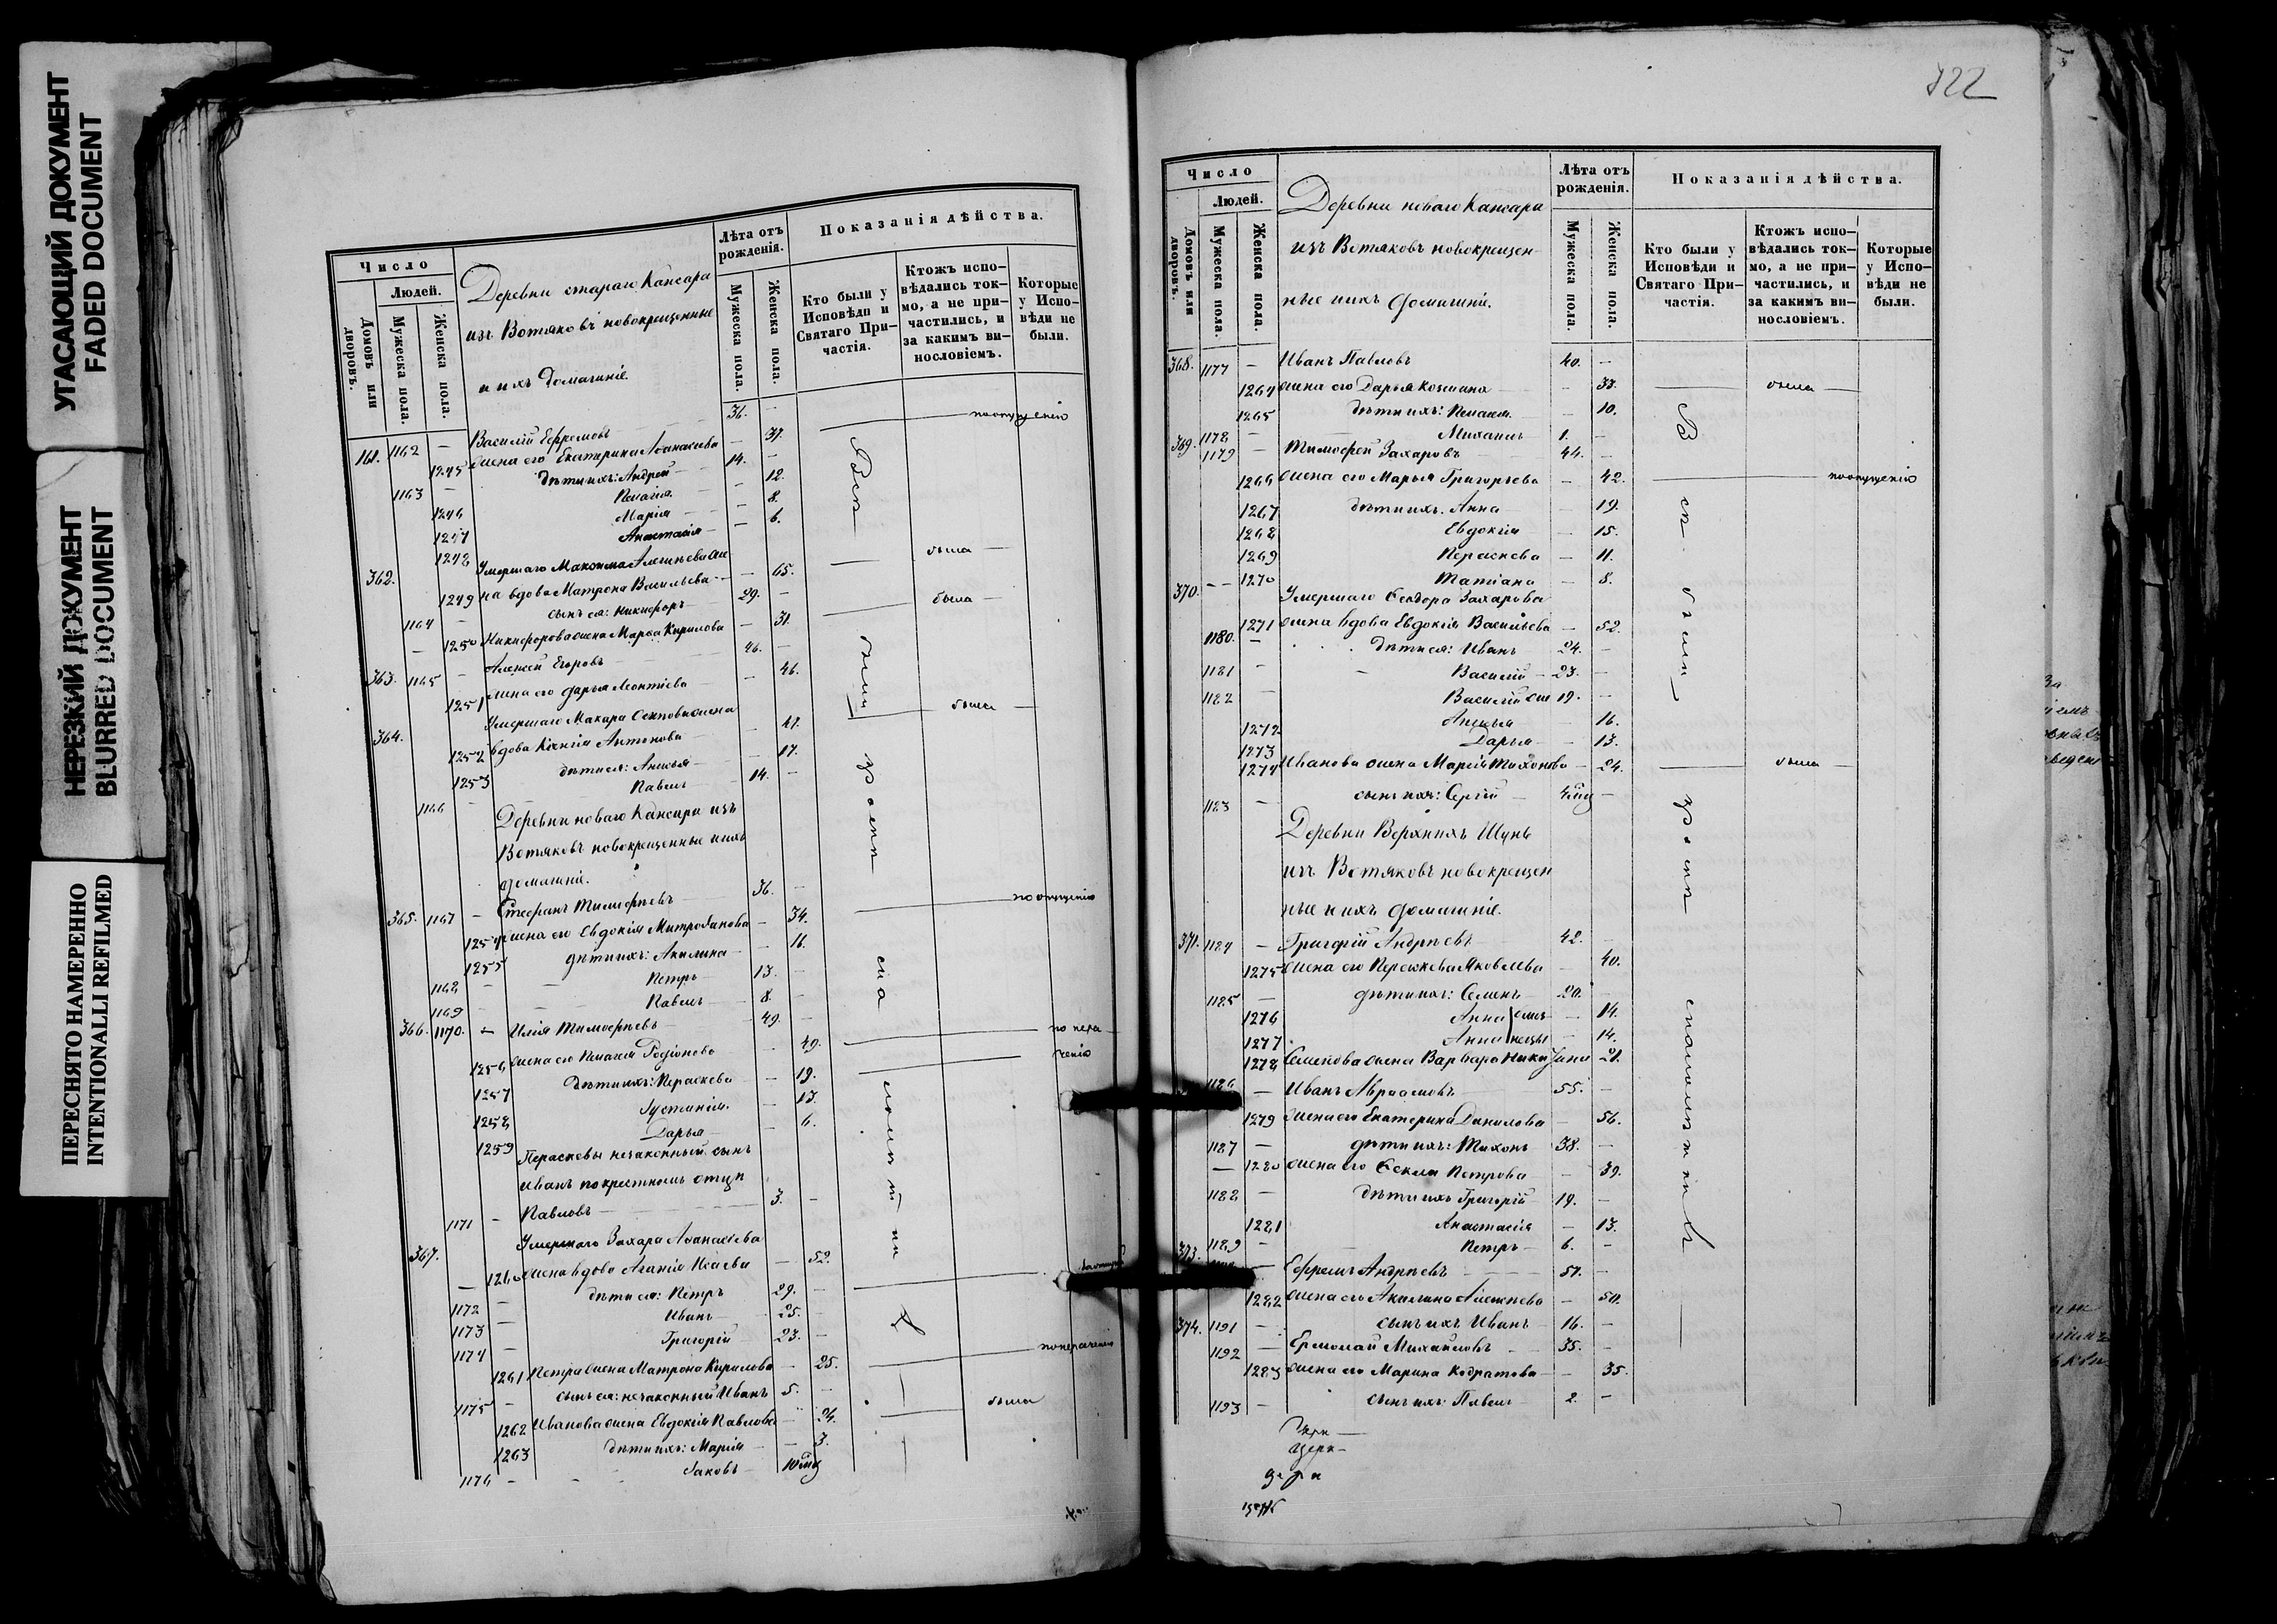 УГАСАЮЩИЙ ДОКУМЕНТ
FADED DOCUMENT
НЕРЕЗКИЙ ДОКУМЕНТ
BLURRED DOCUMENT
ПЕРЕСНЯТО НАМЕРЕННО
INTENTIONALLI REFILMED
Число
Людей.
Домовъ или дворовъ.
Мужеска пола.
Женска пола.
Деревни стараго Кансара
изъ Вотяковъ новокрещенные
и ихъ домашніе
Лѣта отъ рожденія.
Мужеска пола.
Женска пола.
Показанія дѣйства.
Кто были у Исповѣди и Святаго Причастія.
Ктожъ исповѣдались токмо, а не причастились, и за какимъ винословіемъ.
Которые у Исповѣди не были.
161. 1162 — Василій Ефремовъ 36. — по опущенію
1245 жена его Екатерина Афанасіева — 37.
1163 — дѣти ихъ: Андрей 14. —
1246 Пелагія — 12.
1247 Марія — 8.
1248 Анастасія — 6.
362. Умершаго Максима Алексѣева же
1249 на вдова Матрона Васильева — 65. была
1164 — сынъ ея: Никифоръ 29. —
— 1250 Никифорова жена Марья Кирилова — 31. была
363. 1165 — Алексей Егоровъ 46. —
1251 жена его Дарья Леонтіева — 46.
364. Умершаго Макара жена
1252 вдова Ксенія Антонова — 47. была
1253 дѣти ея: Анисья — 17.
1166 — Павелъ 14. —
Деревни новаго Кансара изъ
Вотяковъ новокрещенные и ихъ
домашніе.
365. 1167 — Стефанъ Тимофѣевъ 36. — по опущенію
1254 жена его Евдокія Митрофанова — 34.
1255 дѣти ихъ: Акилина — 16.
1168 — Петръ 13. —
1169 — Павелъ 8. —
366. 1170. — Илія Тимофѣевъ 49. — по нера
1256 жена его Пелагея Родіонова — 49. ченію
1257 дѣти ихъ: Параскева — 19.
1258 Іустинія. — 13.
1259 Дарья — 6.
Параскевы незаконный сынъ
Иванъ по крестномъ отцѣ
1171 — Павловъ 3. —
367. Умершаго Захара Афанасіева
— 1260 жена вдова Агафія Исаева — 52.
1172 — дѣти ея: Петръ 29. —
1173 — Иванъ 25. —
1174 — Григорій 23. —
1261 Петра жена Матрона Кирилова — 25. по нераченію
1175 — сынъ ея: незаконный Иванъ 5. —
1262 Иванова жена Евдокія Павлова — 24. была
1263 дѣти ихъ: Марія — 3.
1176 — Іаковъ
Всѣ были при сей исповѣди
122
Число
Людей.
Домовъ или дворовъ.
Мужеска пола.
Женска пола.
Деревни новаго Кансара
изъ Вотяковъ новокрещен
ные и ихъ домашніе.
Лѣта отъ рожденія.
Мужеска пола.
Женска пола.
Показанія дѣйства.
Кто были у Исповѣди и Святаго Причастія.
Ктожъ исповѣдались токмо, а не причастились, и за какимъ винословіемъ.
Которые у Исповѣди не были.
368. 1177 — Иванъ Павловъ 40. —
1264 жена его Дарья Козмина — 33. была
1265 дѣти ихъ: Пелагея. — 10.
1178 — Михаилъ 1. —
369. 1179 — Тимофей Захаровъ 44. —
1266 жена его Марья Григорьева — 42. по опущенію
1267 дѣти ихъ. Анна — 19.
1268 Евдокія — 15.
1269 Параскева — 11.
1270 Татіана — 8.
370. Умершаго Ѳеодора Захарова
1271 жена вдова Евдокія Васильева — 52.
1180. — дѣти ея: Иванъ 24. —
1181 — Василій 23. —
1182 — Василій 19. —
1272 Анисья — 16.
1273 Дарья — 13.
1274 Иванова жена Марія Тихонова — 24. была
1183 — сынъ ихъ: Сергій —
Деревни Верхнихъ Шунь
изъ Вотяковъ новокрещен
ные и ихъ домашніе.
371. 1184 — Григорій Андрѣевъ 42. —
1275 жена его Параскева Яковлева — 40.
1185 — дѣти ихъ: Семенъ 20. —
1276 Анна — 14.
1277 Анна — 14.
1278 Семенова жена Варвара — 21.
1186 — Иванъ Авраамовъ 55. —
1279 жена его Екатерина Данилова — 56.
1187 — дѣти ихъ: Тихонъ 38. —
— 1280 жена его Ѳекла Петрова — 39.
1188 — дѣти ихъ Григорій 19. —
1281 Анастасія — 13.
1189 — Петръ 6. —
373. — Ефремъ Андрѣевъ 51. —
1282 жена его Акилина Алексѣева — 50.
1191 — сынъ ихъ Иванъ 16. —
374. 1192 — Ермолай Михайловъ 35. —
1283 жена его Марина Кодратова — 35.
1193 — сынъ ихъ: Павелъ 2. —
Всѣ были